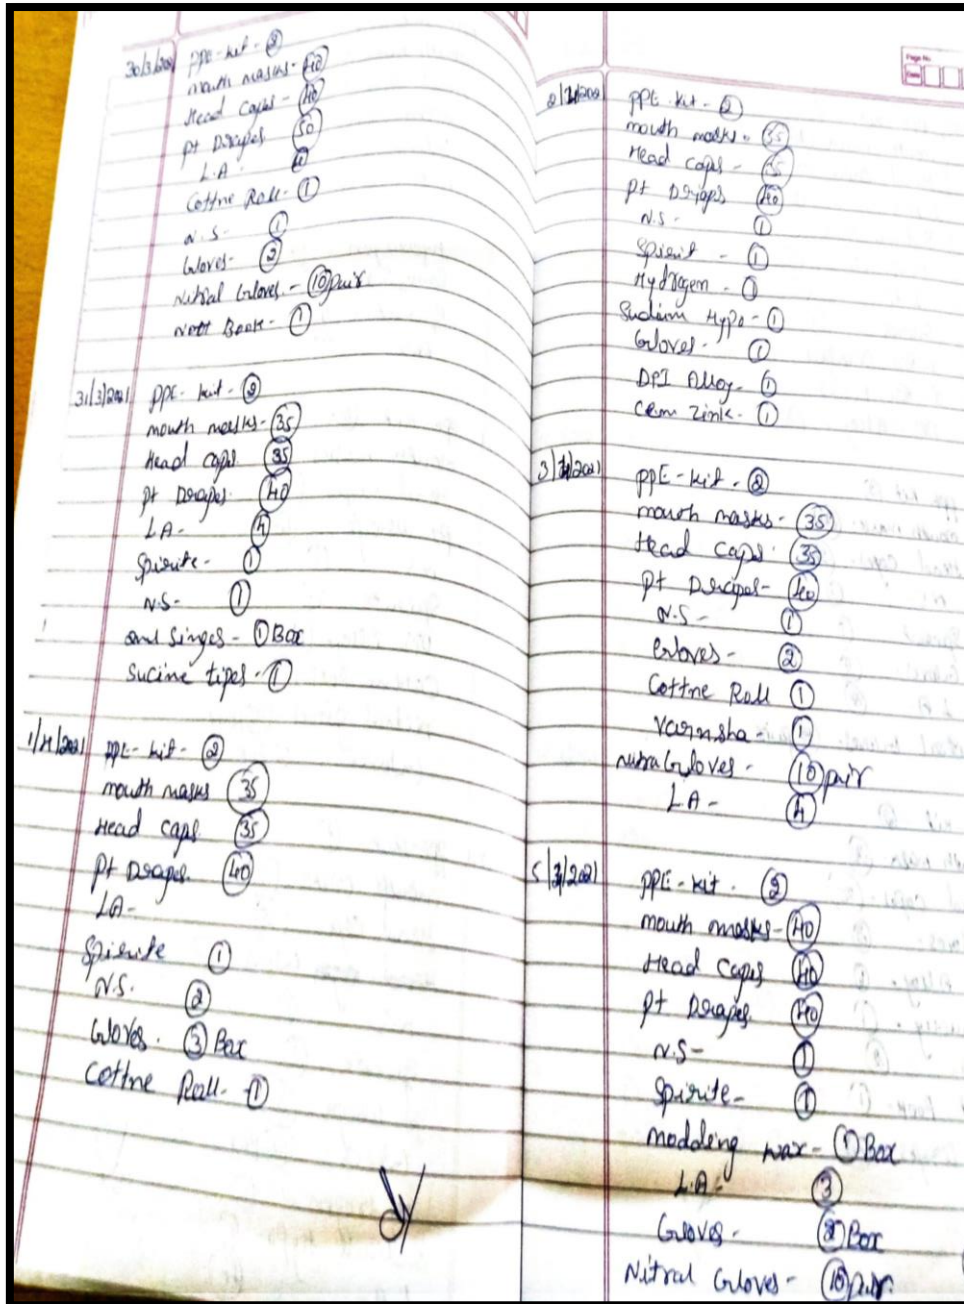 30/3/2021 PPE-kit - 2
mouth masks - 40
Head Caps - 40
pt Drapes 50
L.A - 4
Cottne Roll - 1
N.S - 1
Gloves - 2
Nitral Gloves - 10 pair
Nott Book - 1
31/3/2021 PPE-kit - 2
mouth masks - 35
Head caps 35
pt Drapes 40
LA - 4
Spirite - 1
N.S - 1
and Singes - 1 Box
Sucine tipes - 1
1/4/2021 PPE-kit - 2
mouth masks 35
Head caps 35
pt Drapes 40
LA -
Spirite 1
N.S. 2
Gloves. 3 Box
Cottne Roll - 1
Page No.
Date
2/4/2021 PPE-kit - 2
mouth masks - 35
Head caps - 35
pt Drapes 40
N.S - 1
Spirit - 1
Hydrogen - 1
Sudaim Hypo - 1
Gloves - 1
DPI Alloy - 1
Cem Zink - 1
3/4/2021 PPE-kit - 2
mouth masks - 35
Head caps - 35
pt Drapes - 40
N.S - 1
Gloves - 2
Cottne Roll 1
Varnsha - 1
Nitra Gloves - 10 pair
LA - 4
5/4/2021 PPE-kit - 2
mouth masks - 40
Head Caps 40
pt Drapes 40
N.S - 1
Spirite - 1
moddling wax - 1 Box
L.A - 3
Gloves - 2 Box
Nitral Gloves - 10 pair